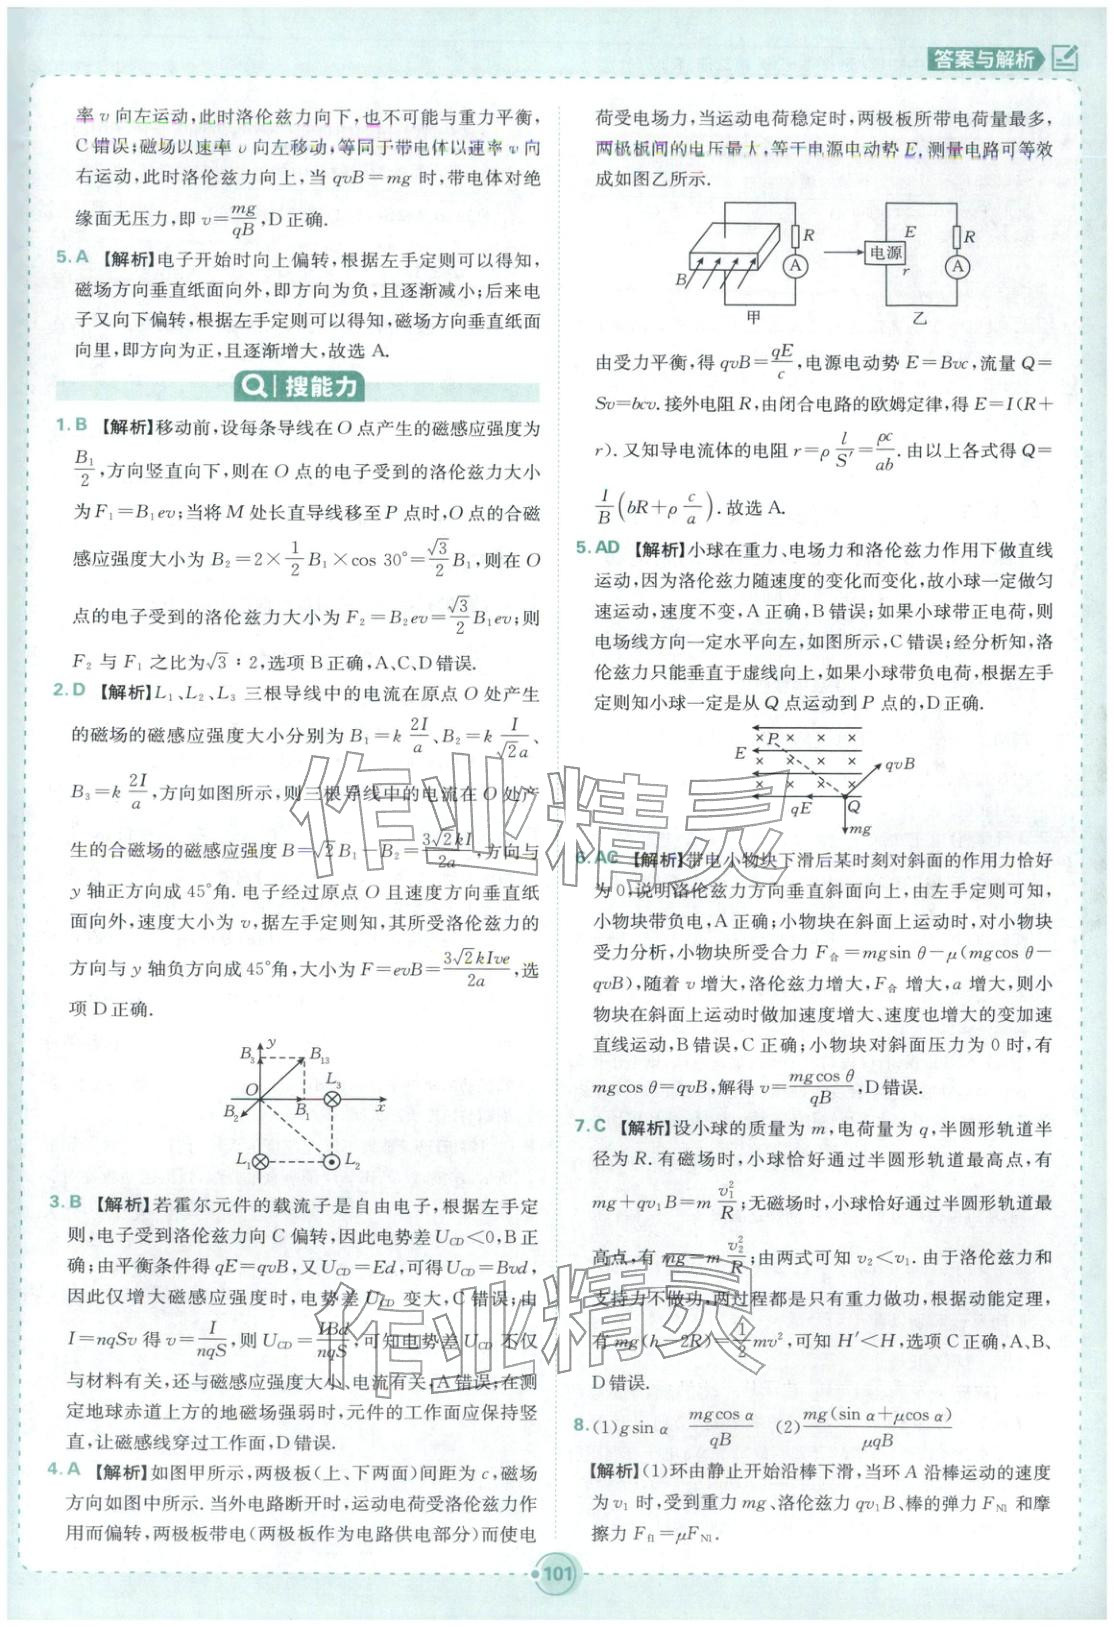 答案与解析
率 v 向左运动,此时洛伦兹力向下,也不可能与重力平衡,
C 错误;磁场以速率 v 向左移动,等同于带电体以速率 v 向
右运动,此时洛伦兹力向上,当 qvB=mg 时,带电体对绝
缘面无压力,即 v=mg/qB,D 正确.
5. A 【解析】电子开始时向上偏转,根据左手定则可以得知,
磁场方向垂直纸面向外,即方向为负,且逐渐减小;后来电
子又向下偏转,根据左手定则可以得知,磁场方向垂直纸面
向里,即方向为正,且逐渐增大,故选 A.
搜能力
1. B 【解析】移动前,设每条导线在 O 点产生的磁感应强度为
B₁/2,方向竖直向下,则在 O 点的电子受到的洛伦兹力大小
为 F₁=B₁ev;当将 M 处长直导线移至 P 点时,O 点的合磁
感应强度大小为 B₂=2×1/2 B₁×cos 30°=√3/2 B₁,则在 O
点的电子受到的洛伦兹力大小为 F₂=B₂ev=√3/2 B₁ev;则
F₂ 与 F₁ 之比为√3∶2,选项 B 正确,A、C、D 错误.
2. D 【解析】L₁、L₂、L₃ 三根导线中的电流在原点 O 处产生
的磁场的磁感应强度大小分别为 B₁=k 2I/a、B₂=k I/√2a、
B₃=k 2I/a,方向如图所示,则三根导线中的电流在 O 处产
生的合磁场的磁感应强度 B=√2 B₁-B₂=3√2kI/2a,方向与
y 轴正方向成 45°角. 电子经过原点 O 且速度方向垂直纸
面向外,速度大小为 v,据左手定则知,其所受洛伦兹力的
方向与 y 轴负方向成 45°角,大小为 F=evB=3√2kIve/2a,选
项 D 正确.
y
B₃ B₁₃
O L₃
B₂ B₁ x
L₁ L₂
3. B 【解析】若霍尔元件的载流子是自由电子,根据左手定
则,电子受到洛伦兹力向 C 偏转,因此电势差 U_CD<0,B 正
确;由平衡条件得 qE=qvB,又 U_CD=Ed,可得 U_CD=Bvd,
因此仅增大磁感应强度时,电势差 U_CD 变大,C 错误;由
I=nqSv 得 v=I/nqS,则 U_CD=IBd/nqS,可知电势差 U_CD 不仅
与材料有关,还与磁感应强度大小、电流有关,A 错误;在测
定地球赤道上方的地磁场强弱时,元件的工作面应保持竖
直,让磁感线穿过工作面,D 错误.
4. A 【解析】如图甲所示,两极板(上、下两面)间距为 c,磁场
方向如图中所示. 当外电路断开时,运动电荷受洛伦兹力作
用而偏转,两极板带电(两极板作为电路供电部分)而使电
荷受电场力,当运动电荷稳定时,两极板所带电荷量最多,
两极板间的电压最大,等于电源电动势 E,测量电路可等效
成如图乙所示.
B R A 甲
E 电源 r R A 乙
由受力平衡,得 qvB=qE/c,电源电动势 E=Bvc,流量 Q=
Sv=bcv. 接外电阻 R,由闭合电路的欧姆定律,得 E=I(R+
r). 又知导电流体的电阻 r=ρ l/S′=ρc/ab. 由以上各式得 Q=
I/B(bR+ρ c/a). 故选 A.
5. AD 【解析】小球在重力、电场力和洛伦兹力作用下做直线
运动,因为洛伦兹力随速度的变化而变化,故小球一定做匀
速运动,速度不变,A 正确,B 错误;如果小球带正电荷,则
电场线方向一定水平向左,如图所示,C 错误;经分析知,洛
伦兹力只能垂直于虚线向上,如果小球带负电荷,根据左手
定则知小球一定是从 Q 点运动到 P 点的,D 正确.
P
E qvB
qE Q
mg
6. AC 【解析】带电小物块下滑后某时刻对斜面的作用力恰好
为 0,说明洛伦兹力方向垂直斜面向上,由左手定则可知,
小物块带负电,A 正确;小物块在斜面上运动时,对小物块
受力分析,小物块所受合力 F合=mgsin θ-μ(mgcos θ-
qvB),随着 v 增大,洛伦兹力增大,F合 增大,a 增大,则小
物块在斜面上运动时做加速度增大、速度也增大的变加速
直线运动,B 错误,C 正确;小物块对斜面压力为 0 时,有
mgcos θ=qvB,解得 v=mgcos θ/qB,D 错误.
7. C 【解析】设小球的质量为 m,电荷量为 q,半圆形轨道半
径为 R. 有磁场时,小球恰好通过半圆形轨道最高点,有
mg+qv₁B=m v₁²/R;无磁场时,小球恰好通过半圆形轨道最
高点,有 mg=m v₂²/R;由两式可知 v₂<v₁. 由于洛伦兹力和
支持力不做功,两过程都是只有重力做功,根据动能定理,
有 mg(h-2R)=1/2 mv²,可知 H′<H,选项 C 正确,A、B、
D 错误.
8. (1)gsin α mgcos α/qB (2)mg(sin α+μcos α)/μqB
【解析】(1)环由静止开始沿棒下滑,当环 A 沿棒运动的速度
为 v₁ 时,受到重力 mg、洛伦兹力 qv₁B、棒的弹力 F_N1 和摩
擦力 F_f1=μF_N1.
101
作业精灵
作业精灵